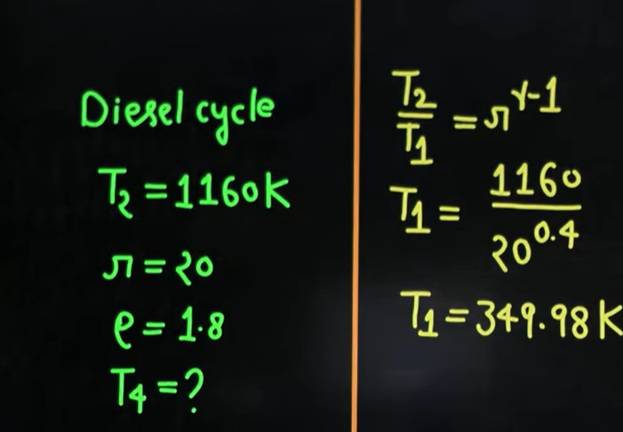 Diesel cycle
T₂ = 1160K
r = 20
ρ = 1.8
T₄ = ?
T₂/T₁ = r^γ-1
T₁ = 1160/20^0.4
T₁ = 349.98 K